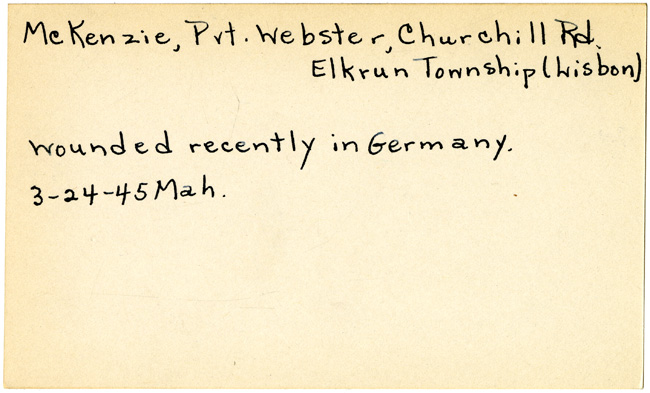 McKenzie, Pvt. Webster, Churchill Rd.
Elkrun Township (Lisbon)
wounded recently in Germany.
3-24-45 Mah.